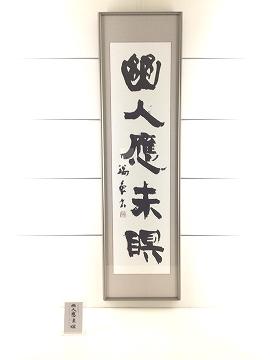 幽人應未眠
幽人應未眠